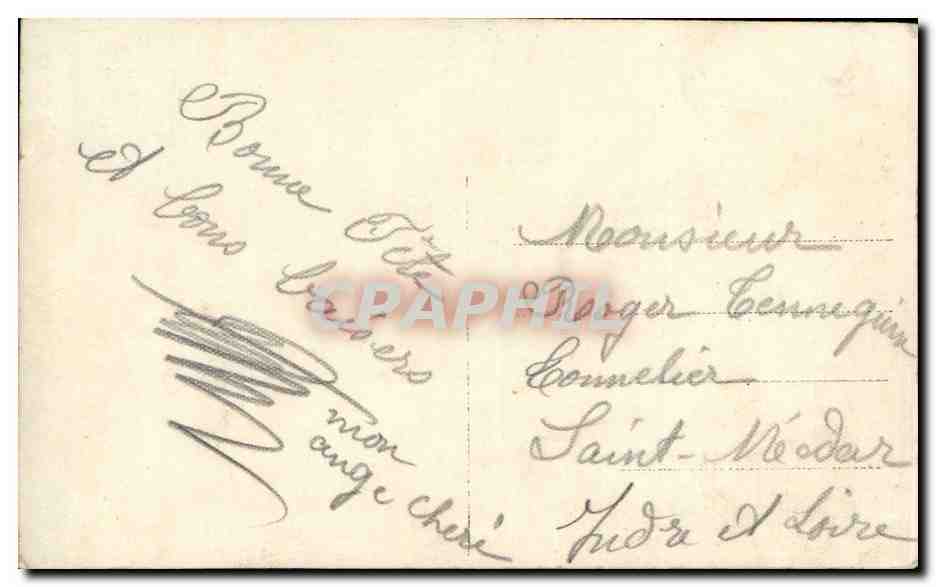 Bonne Fête
et bons baisers
mon
ange cheré
Monsieur
Roger Tenneguin
Tonnelier
Saint-Médar
Indre et Loire
CPAPHIL